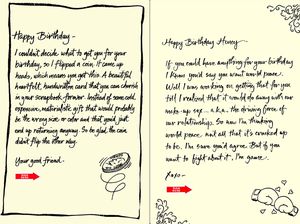 Happy Birthday -
I couldn't decide what to get you for your
birthday, so I flipped a coin. It came up
heads, which means you get this: A beautiful
heartfelt, handwritten card that you can cherish
in your scrapbook forever. Instead of some cold,
expensive, materialistic gift that would probably
be the wrong size or color and that you'd just
end up returning anyway. So be glad the coin
didn't flip the other way.
Your good friend -
Happy Birthday Honey -
If you could have anything for your birthday
I know you'd say you want world peace.
Well I was working on getting that for you
till I realized that it would do away with our
make-up sex, a.k.a. the driving force of
our relationship. So now I'm thinking
world peace, not all that it's cracked up
to be. I'm sure you'd agree. But if you
want to fight about it, I'm game.
xoxo -